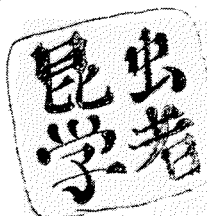 昆虫
学者